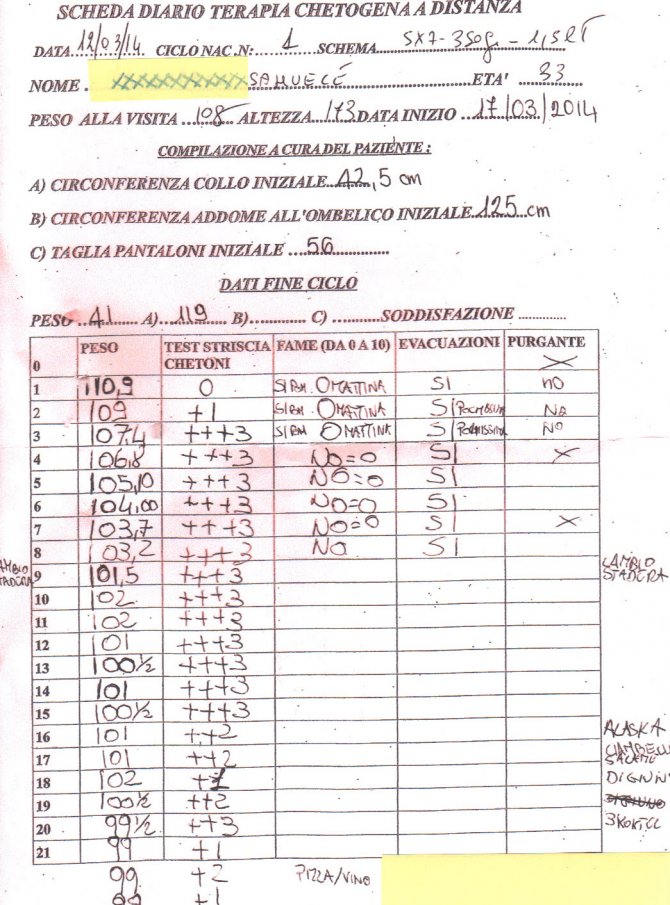 SCHEDA DIARIO TERAPIA CHETOGENA A DISTANZA
DATA 12/03/14 CICLO NAC .N: 1 SCHEMA 5x7-350g - 1,5 LT
NOME . XXXXXXXXXXX SAMUELE ETA' 33
PESO ALLA VISITA 108 ALTEZZA 173 DATA INIZIO 17/03/2014
COMPILAZIONE A CURA DEL PAZIENTE :
A) CIRCONFERENZA COLLO INIZIALE 42,5 cm
B) CIRCONFERENZA ADDOME ALL'OMBELICO INIZIALE 125 cm
C) TAGLIA PANTALONI INIZIALE 56
DATI FINE CICLO
PESO 41 A) 119 B) C) SODDISFAZIONE
0 PESO TEST STRISCIA CHETONI FAME (DA 0 A 10) EVACUAZIONI PURGANTE X
1 110,9 0 0 MATTINA SI NO
2 109 +1 0 MATTINA SI NO
3 107,4 +++3 0 MATTINA SI NO
4 106,8 +++3 NO=0 SI X
5 105,10 +++3 NO=0 SI
6 104,00 +++3 NO=0 SI
7 103,7 +++3 NO=0 SI X
8 103,2 +++3 NO SI
CAMBIO STADERA 9 101,5 +++3 CAMBIO STADERA
10 102 +++3
11 102 +++3
12 101 +++3
13 100½ +++3
14 101 +++3
15 100½ +++3
16 101 ++2 ALASKA
17 101 ++2 SALAME
18 102 +1
19 100½ ++2
20 99½ ++3
21 99 +1
99 +2 PIZZA/VINO
99 +1